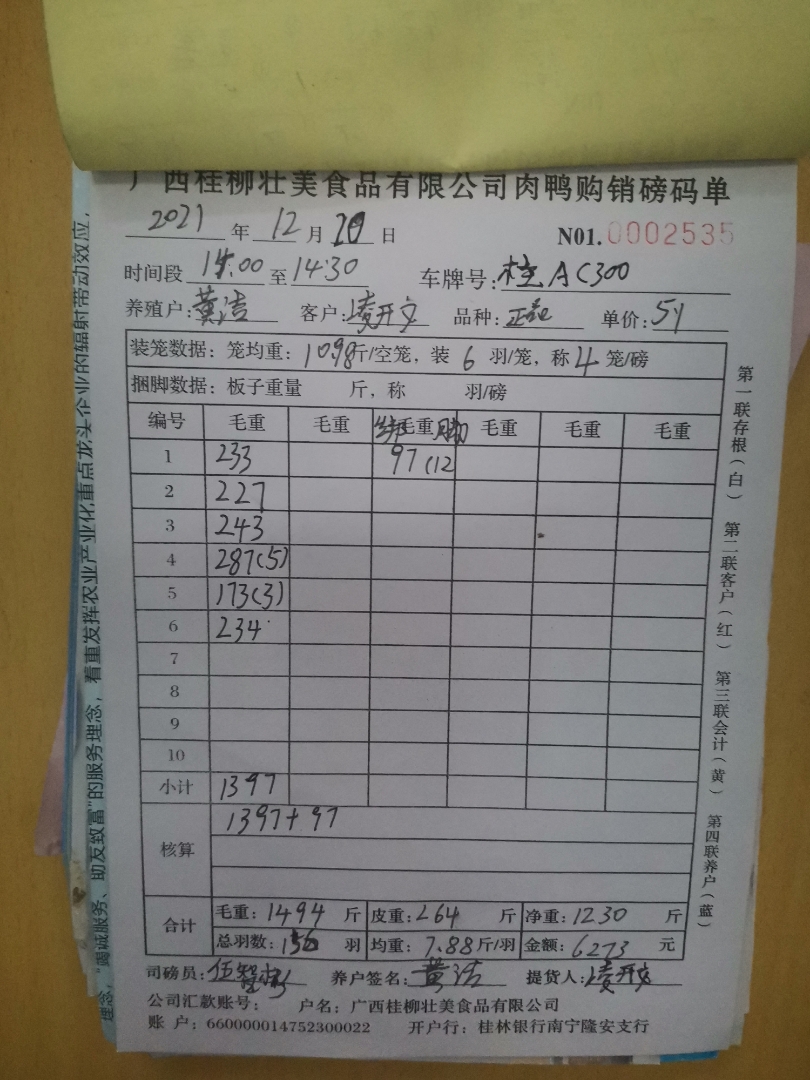 广西桂柳壮美食品有限公司肉鸭购销磅码单
2021年12月20日 N01.0002535
时间段 14:00至14:30 车牌号:桂AC300
养殖户:黄洁 客户:凌开文 品种: 单价:5.1
装笼数据:笼均重:10.98斤/空笼,装6羽/笼,称4笼/磅
捆脚数据:板子重量 斤,称 羽/磅
编号 毛重 毛重 绑毛重脚 毛重 毛重 毛重
1 233 97(12
2 227
3 243
4 287(5)
5 173(3)
6 234
7
8
9
10
小计 1397
核算 1397+97
合计 毛重:1494斤 皮重:264斤 净重:1230斤
总羽数:156羽 均重:7.88斤/羽 金额:6273元
司磅员: 养户签名:黄洁 提货人:凌开文
公司汇款账号: 户名:广西桂柳壮美食品有限公司
账户:660000014752300022 开户行:桂林银行南宁隆安支行
第一联存根(白) 第二联客户(红) 第三联会计(黄) 第四联养户(蓝)
理念,"竭诚服务、助友致富"的服务理念,着重发挥农业产业化重点龙头企业的辐射带动效应,